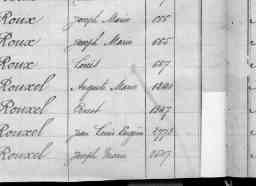 Roux Joseph Marie
Roux Joseph Marie 665
Roux Louis 667
Rouxel Auguste Marie
Rouxel Ernest
Rouxel Jean Louis Eugène
Rouxel Joseph Marie